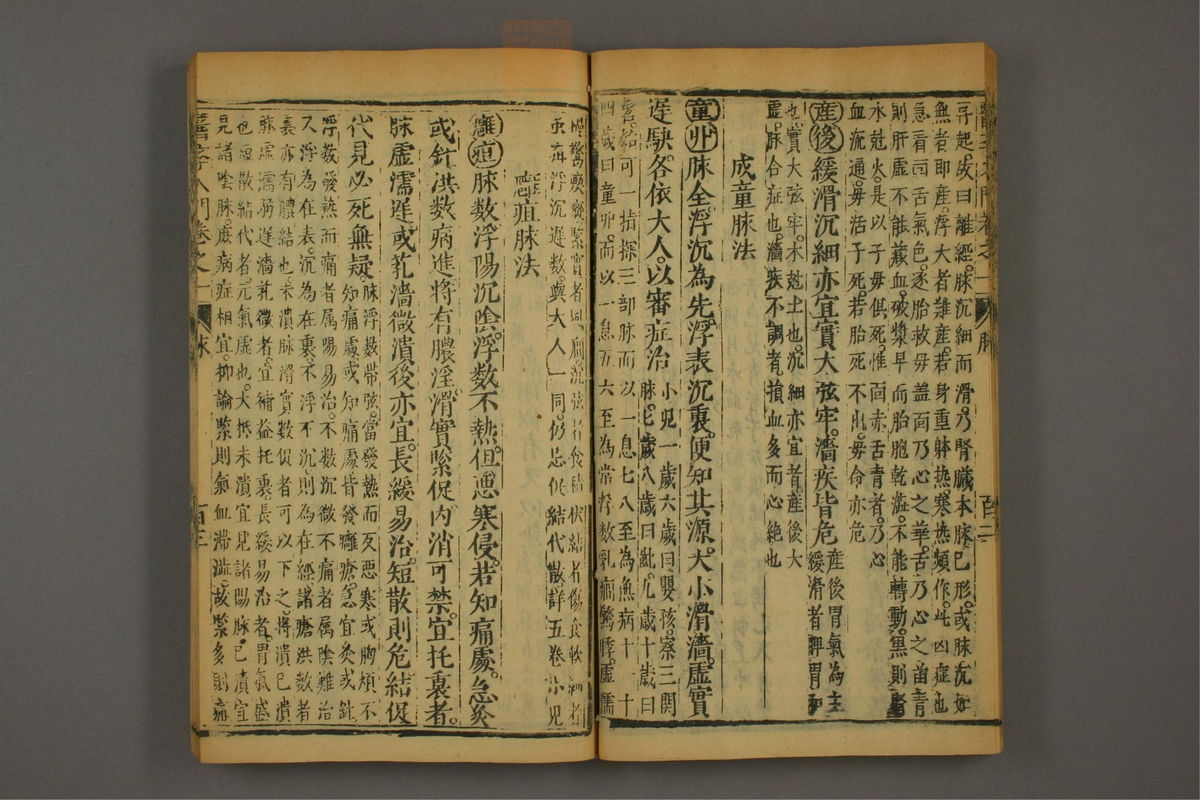 醫學入門卷之一 脉 百二
尋起故曰離經脉沉細而滑乃腎臟本脉已形或脉沉如
無者即産浮大者難産若身重躰熱寒熱頻作此凶症也
急看面舌氣色逐胎救毋盖面乃心之華舌乃心之苗青
則肝虛不能藏血破漿早而胎胞乾澁不能轉動黑則腎
水尅火是以子毋俱死惟面赤舌青者乃心
血流通毋活子死若胎死不出毋命亦危
産後緩滑沉細亦宜實大弦牢濇疾皆危
産後胃氣為主
緩滑者脾胃和
也實大弦牢木尅土也沉細亦宜者産後大
虛脉合症也濇疾不調者損血多而心絶也
成童脉法
童丱脉全浮沉為先浮表沉裏便知其源大小滑濇虛實
遲駃各依大人以審症治
小児一歲六歲曰嬰孩察三関
脉七歲八歲曰齓九歲十歲曰
可一指探三部脉而以一息七八至為無病十
四歲曰童丱而以一息五六至為常浮數乳癎驚悸虛濡
沉弦者食積伏結者傷食軟細者
浮沉遲數與大人一同仍忌促結代散詳五卷小児
癰疽脉法
癰疽脉數浮陽沉陰浮數不熱但悪寒侵若知痛處急灸
或針洪數病進將有膿淫滑實緊促内消可禁宜托裏者
脉虛濡遲或芤濇微潰後亦宜長緩易治短散則危結促
代見必死無疑
脉浮數帶弦當發熱而反悪寒或胸煩不
知痛處或知痛處皆發癰瘡急宜灸或針
浮數發熱而痛者属陽易治不數沉微不痛者属陰難治
又浮為在表沉為在裏不浮不沉則為在經諸瘡洪數者
裏亦有膿結也未潰脉滑實數促者可以下之將潰已潰
脉虛濡弱遲濇芤微者宜補益托裏長緩易治者胃氣盛
也短散結代者元氣虛也大抵未潰宜見諸陽脉已潰宜
見諸陰脉處病症相宜抑論緊則氣血滯澁故緊多則痛
醫學入門卷之一 脉 百三